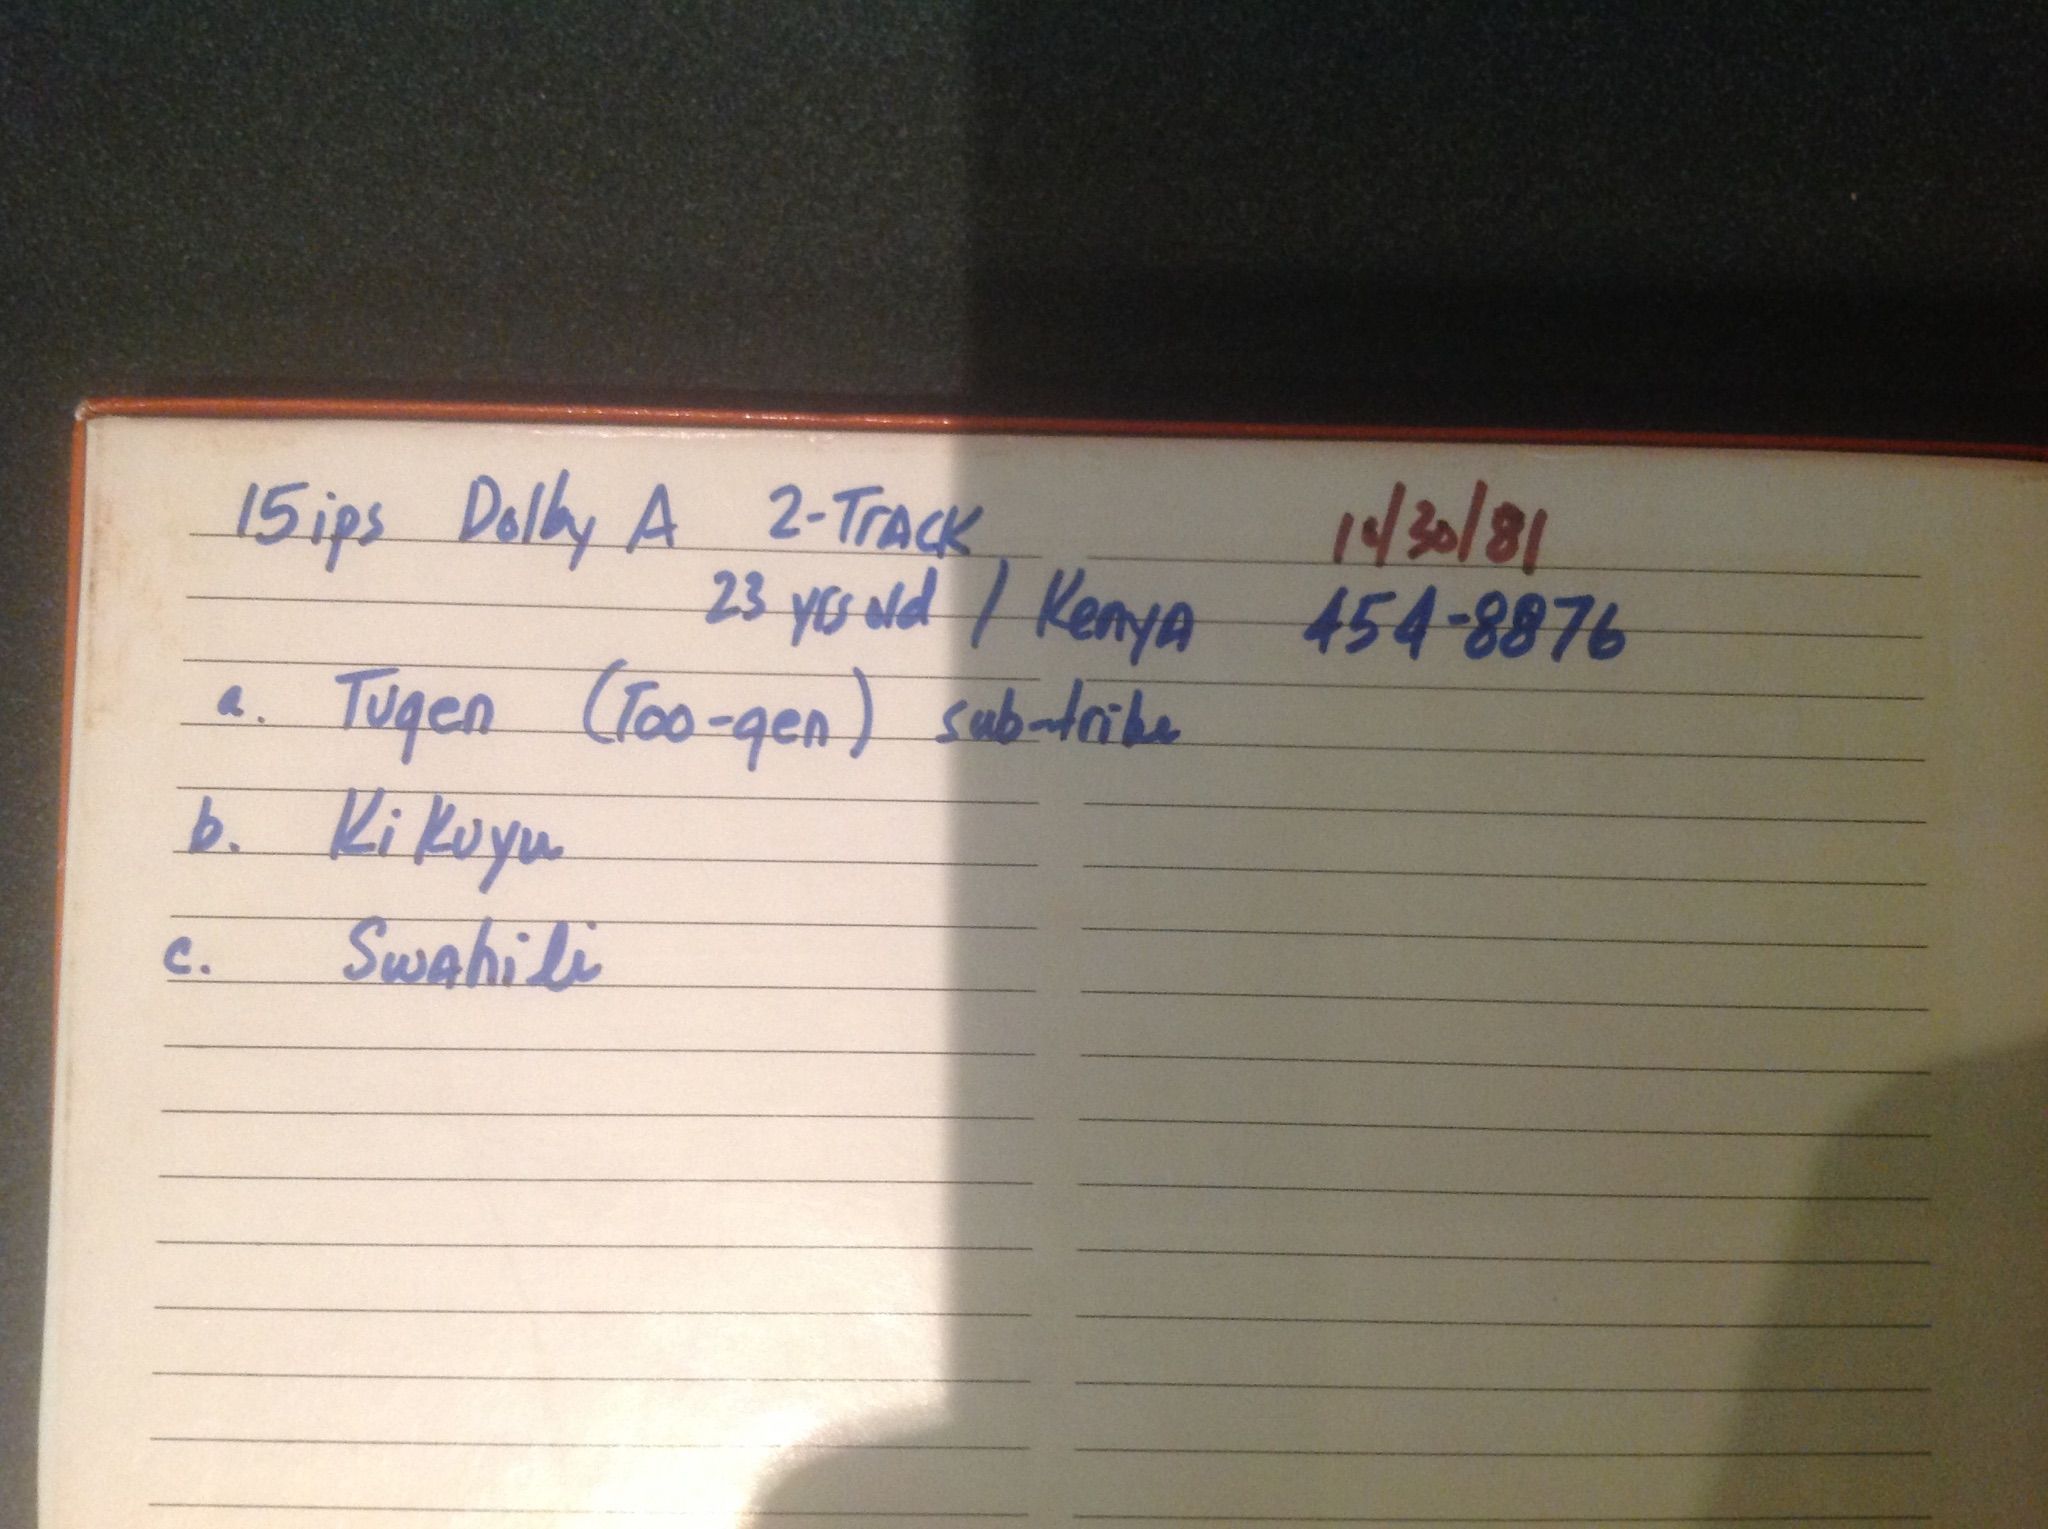 15 ips Dolby A 2-Track 10/30/81
23 yrs old / Kenya 454-8876
a. Tugen (Too-gen) sub-tribe
b. Ki Kuyu
c. Swahili